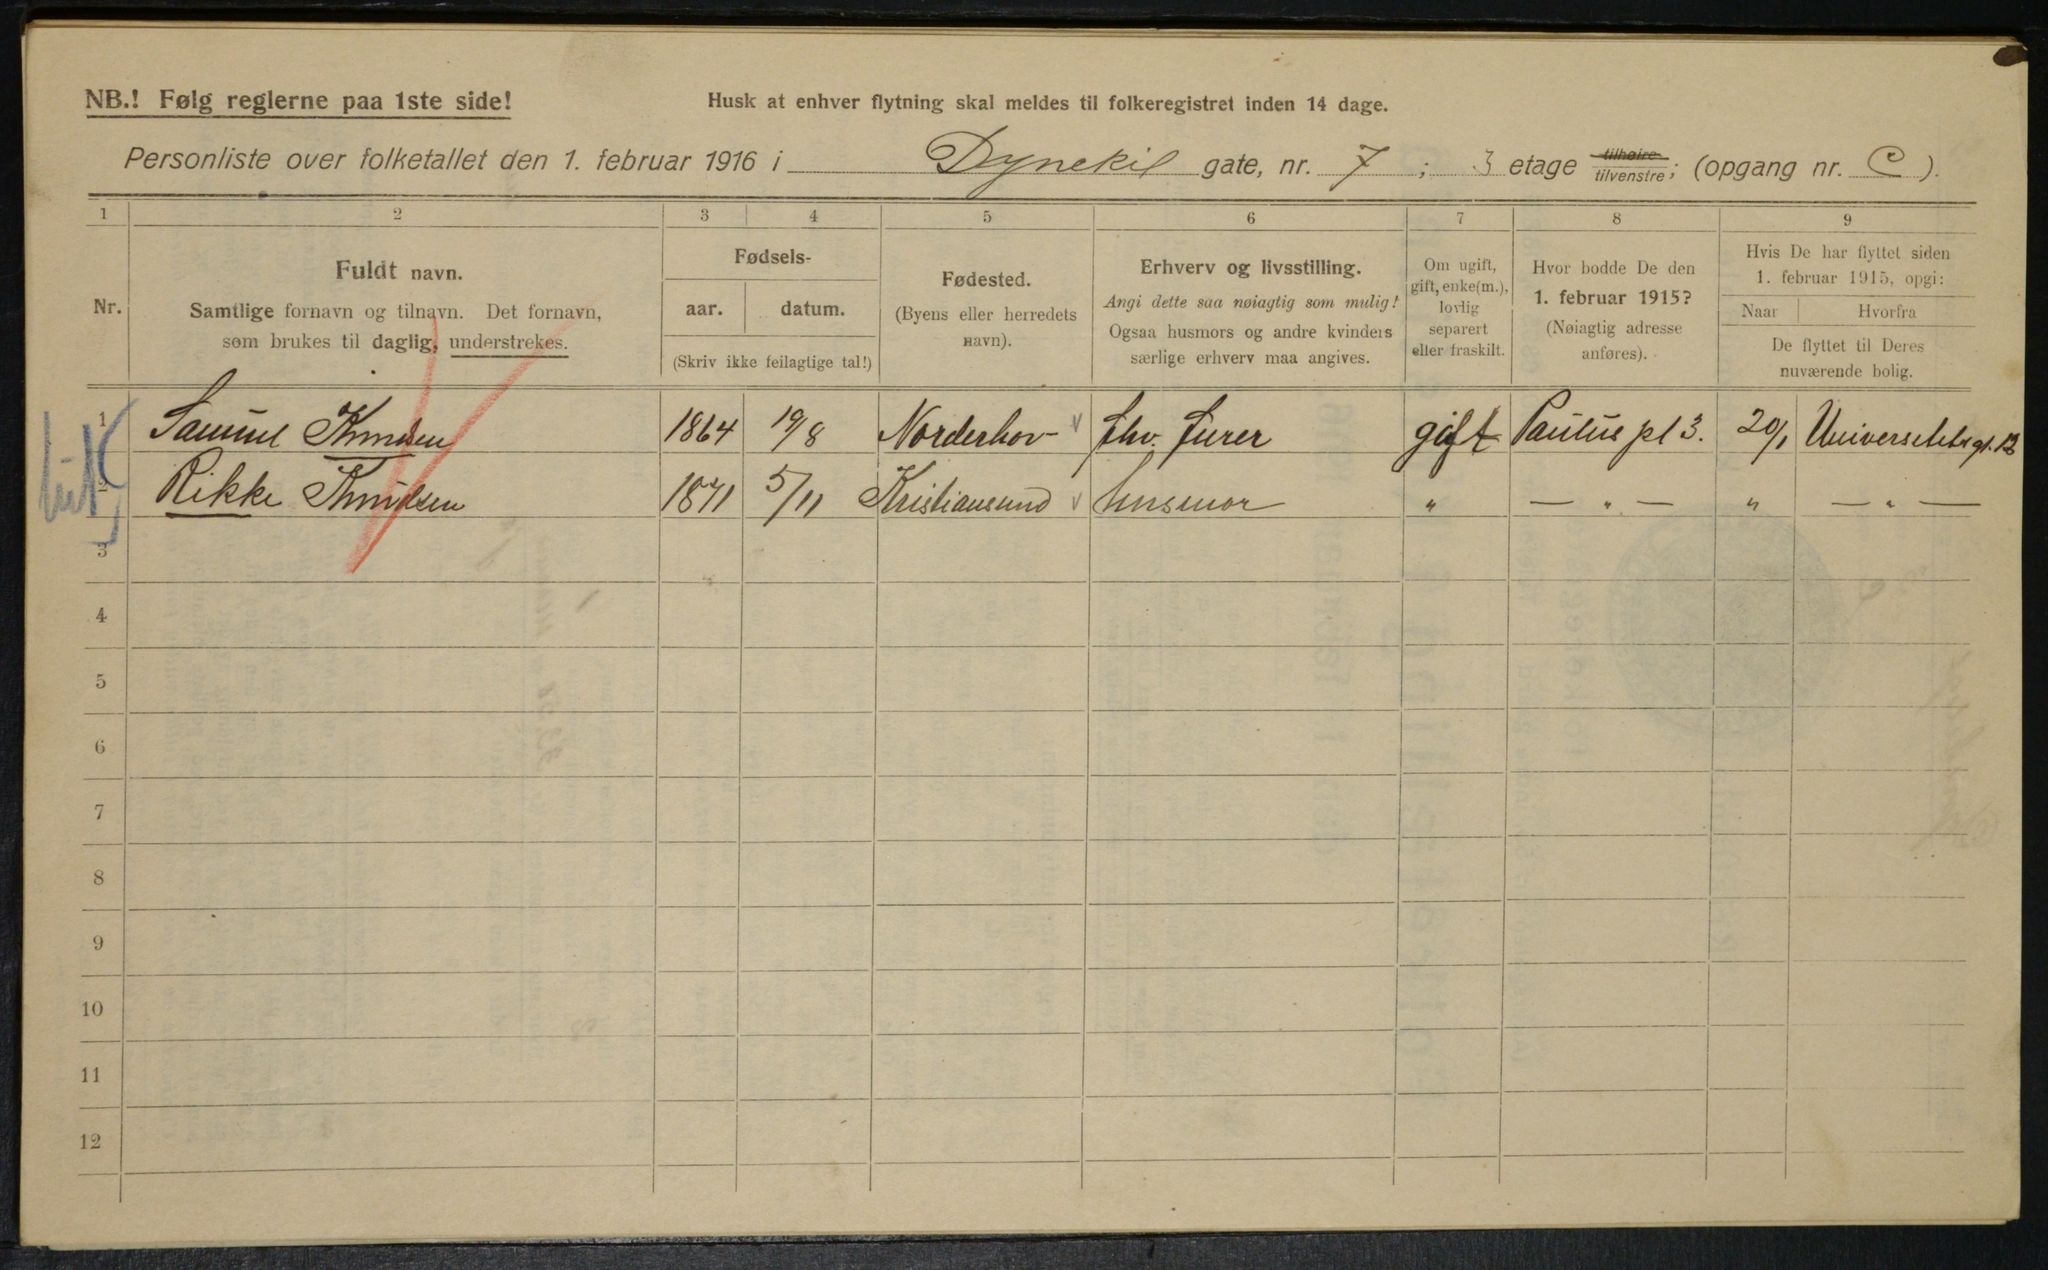 NB.! Følg reglerne paa 1ste side!
Husk at enhver flytning skal meldes til folkeregistret inden 14 dage.
Personliste over folketallet den 1. februar 1916 i Dynekil gate, nr. 7 ; 3 etage tilhøire tilvenstre; (opgang nr. C ).
1 2 3 4 5 6 7 8 9
Nr.
Fuldt navn.
Samtlige fornavn og tilnavn. Det fornavn,
som brukes til daglig, understrekes.
Fødsels-
aar. datum.
(Skriv ikke feilagtige tal!)
Fødested.
(Byens eller herredets
navn).
Erhverv og livsstilling.
Angi dette saa nøiagtig som mulig!
Ogsaa husmors og andre kvinders
særlige erhverv maa angives.
Om ugift,
gift, enke(m.),
lovlig
separert
eller fraskilt.
Hvor bodde De den
1. februar 1915?
(Nøiagtig adresse
anføres).
Hvis De har flyttet siden
1. februar 1915, opgi:
Naar Hvorfra
De flyttet til Deres
nuværende bolig.
1 Samuel Knudsen 1864 19/8 Norderhov fhv. furer gift Paulus pl 3. 20/1 Universitetsgt. 12
2 Rikke Knudsen 1871 5/11 Kristiansund husmor " — " — " — " —
3
4
5
6
7
8
9
10
11
12